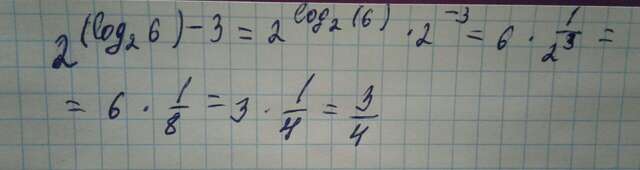 2^{(log₂6)-3} = 2^{log₂(6)} · 2^{-3} = 6 · \frac{1}{2^3} =
= 6 · \frac{1}{8} = 3 · \frac{1}{4} = \frac{3}{4}